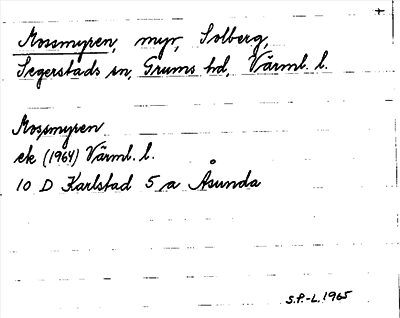 +
Mossmyren, myr, Solberg,
Segerstads sn, Grums hd, Värml. l.
Mossmyren
ek (1964) Värml. l.
10 D Karlstad 5 a Åsunda
S.P.-L. 1965